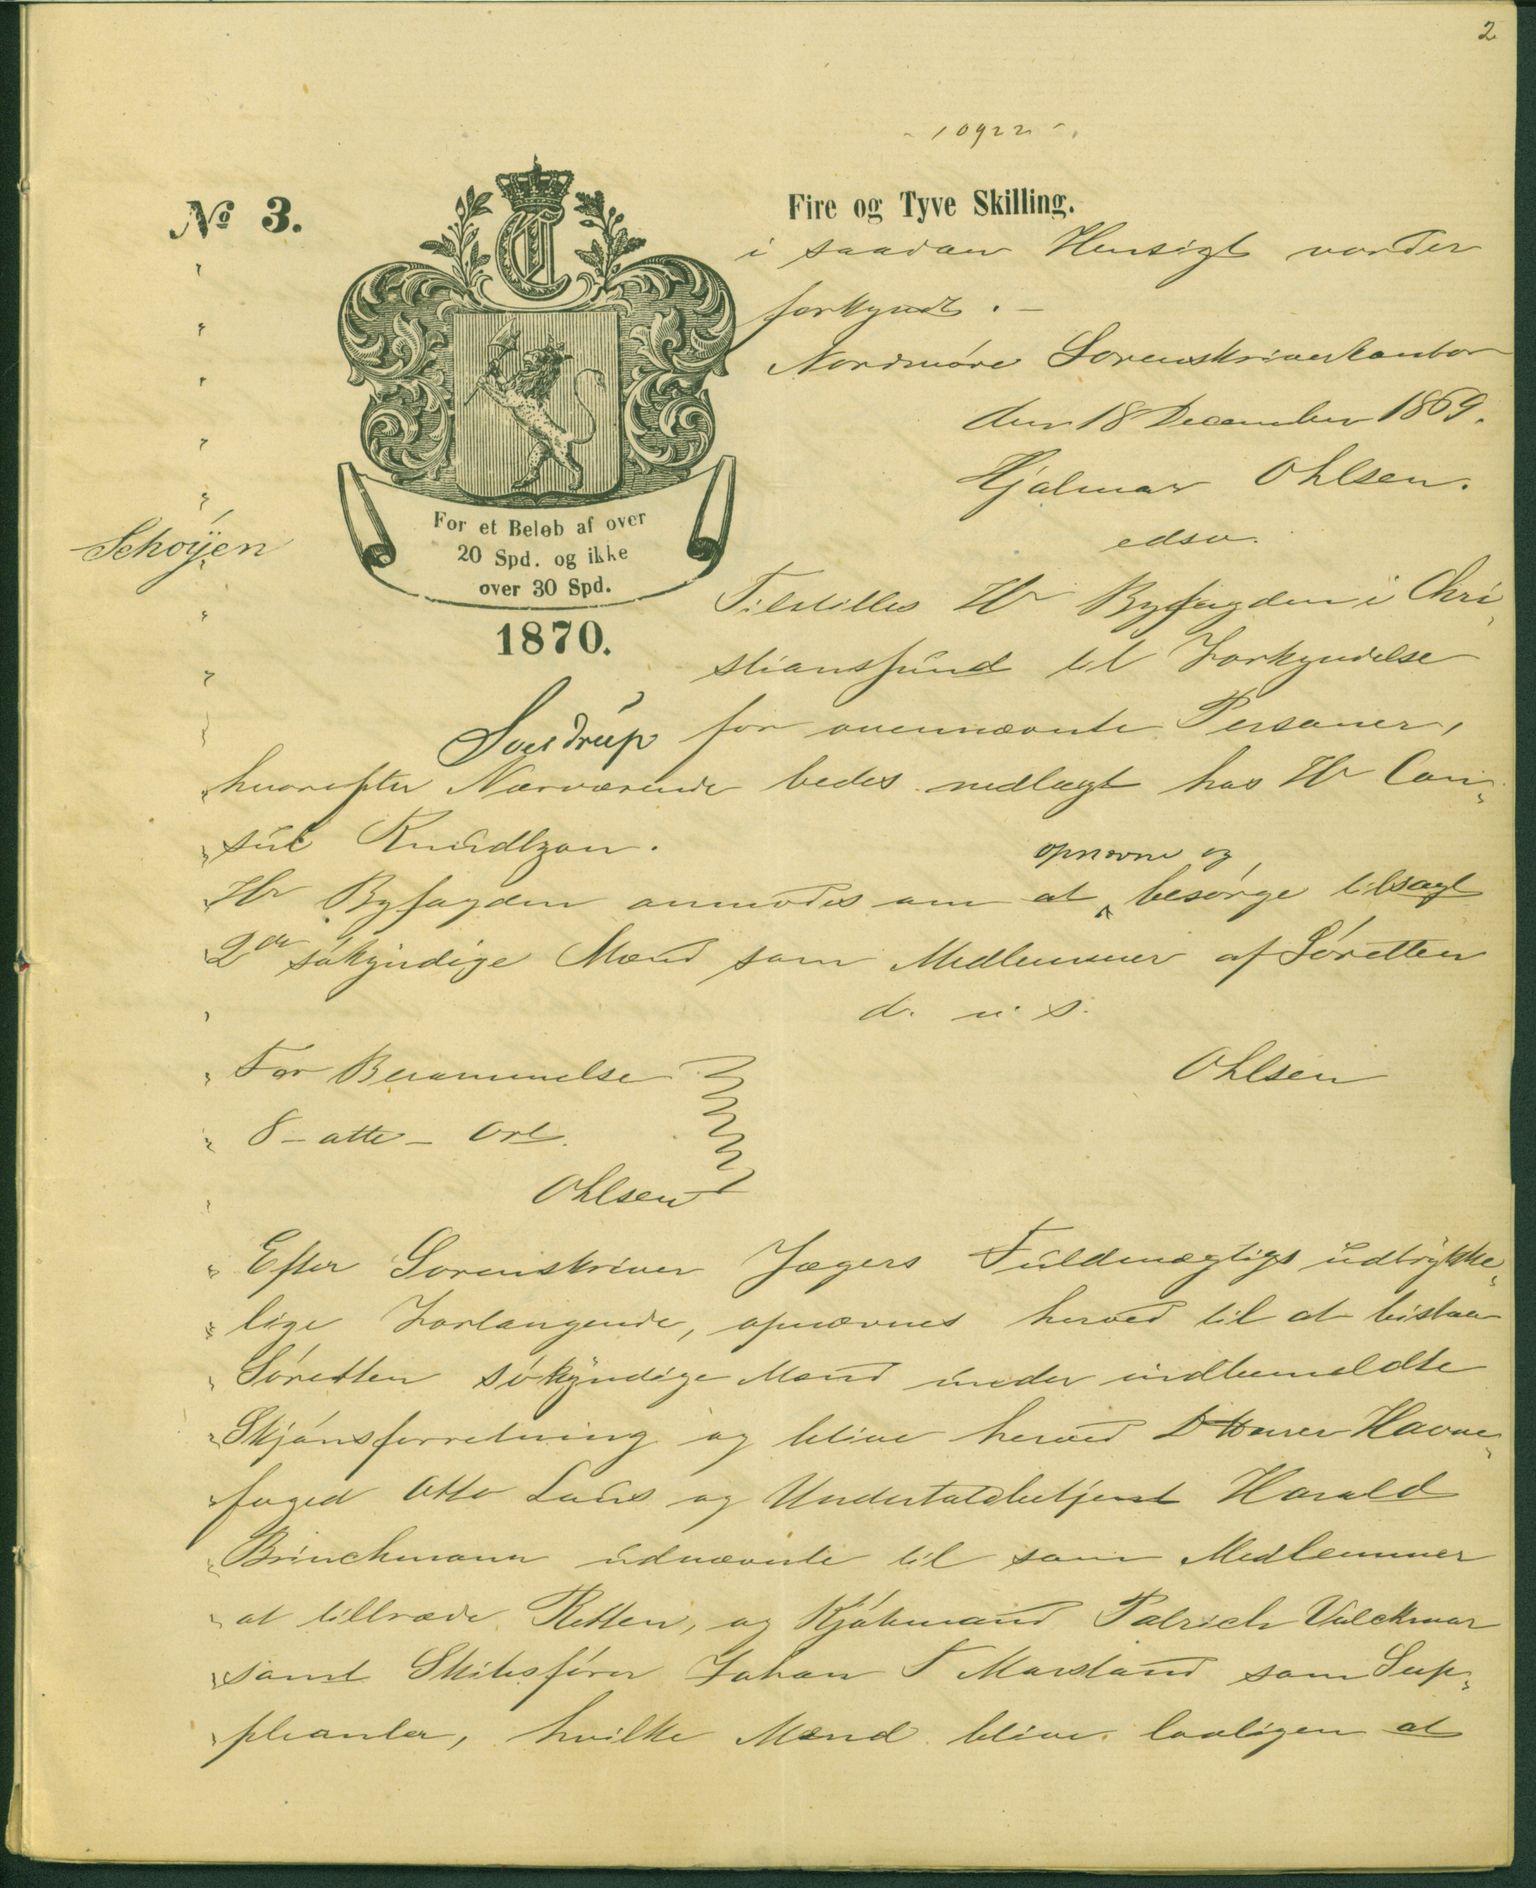 2
- 10922 -
No 3.
Fire og Tyve Skilling.
i saadan Hensigt vorder
forkyndt. -
Nordmøre Sorenskriverkontor
den 18 December 1869.
Hjalmar Ohlsen.
edsv.
Schøyen
For et Beløb af over
20 Spd. og ikke
over 30 Spd.
1870.
Tilstilles Hr Byfogden i Chri-
stianssund til Forkyndelse
Sverdrup for ovennævnte Personer,
hvorefter Nærværende bedes nedlagt hos Hr Con-
sul Knudtzon.
opnævne og
Hr Byfogden anmodes om at besørge tilsagt
2de søkyndige Mænd som Medlemmer af Søretten
d. u. s.
Ohlsen
For Berammelse
8 - otte - Ort.
Ohlsen
Efter Sorenskriver Jægers Fuldmægtigs udtrykke-
lige Forlangende, opnævnes herved til at bistaa
Søretten søkyndige Mænd under indbemeldte
Skjønsforretning og blive herved D'Herrer Havne-
foged Otto Laus og Undertoldbetjent Harald
Brinchmann udnævnte til som Medlemmer
at tiltræde Retten, og Kjøbmand Patrich Volckmar
samt Skibsfører Johan F Marstand som Sup-
pleanter, hvilke Mænd blive lovligen at